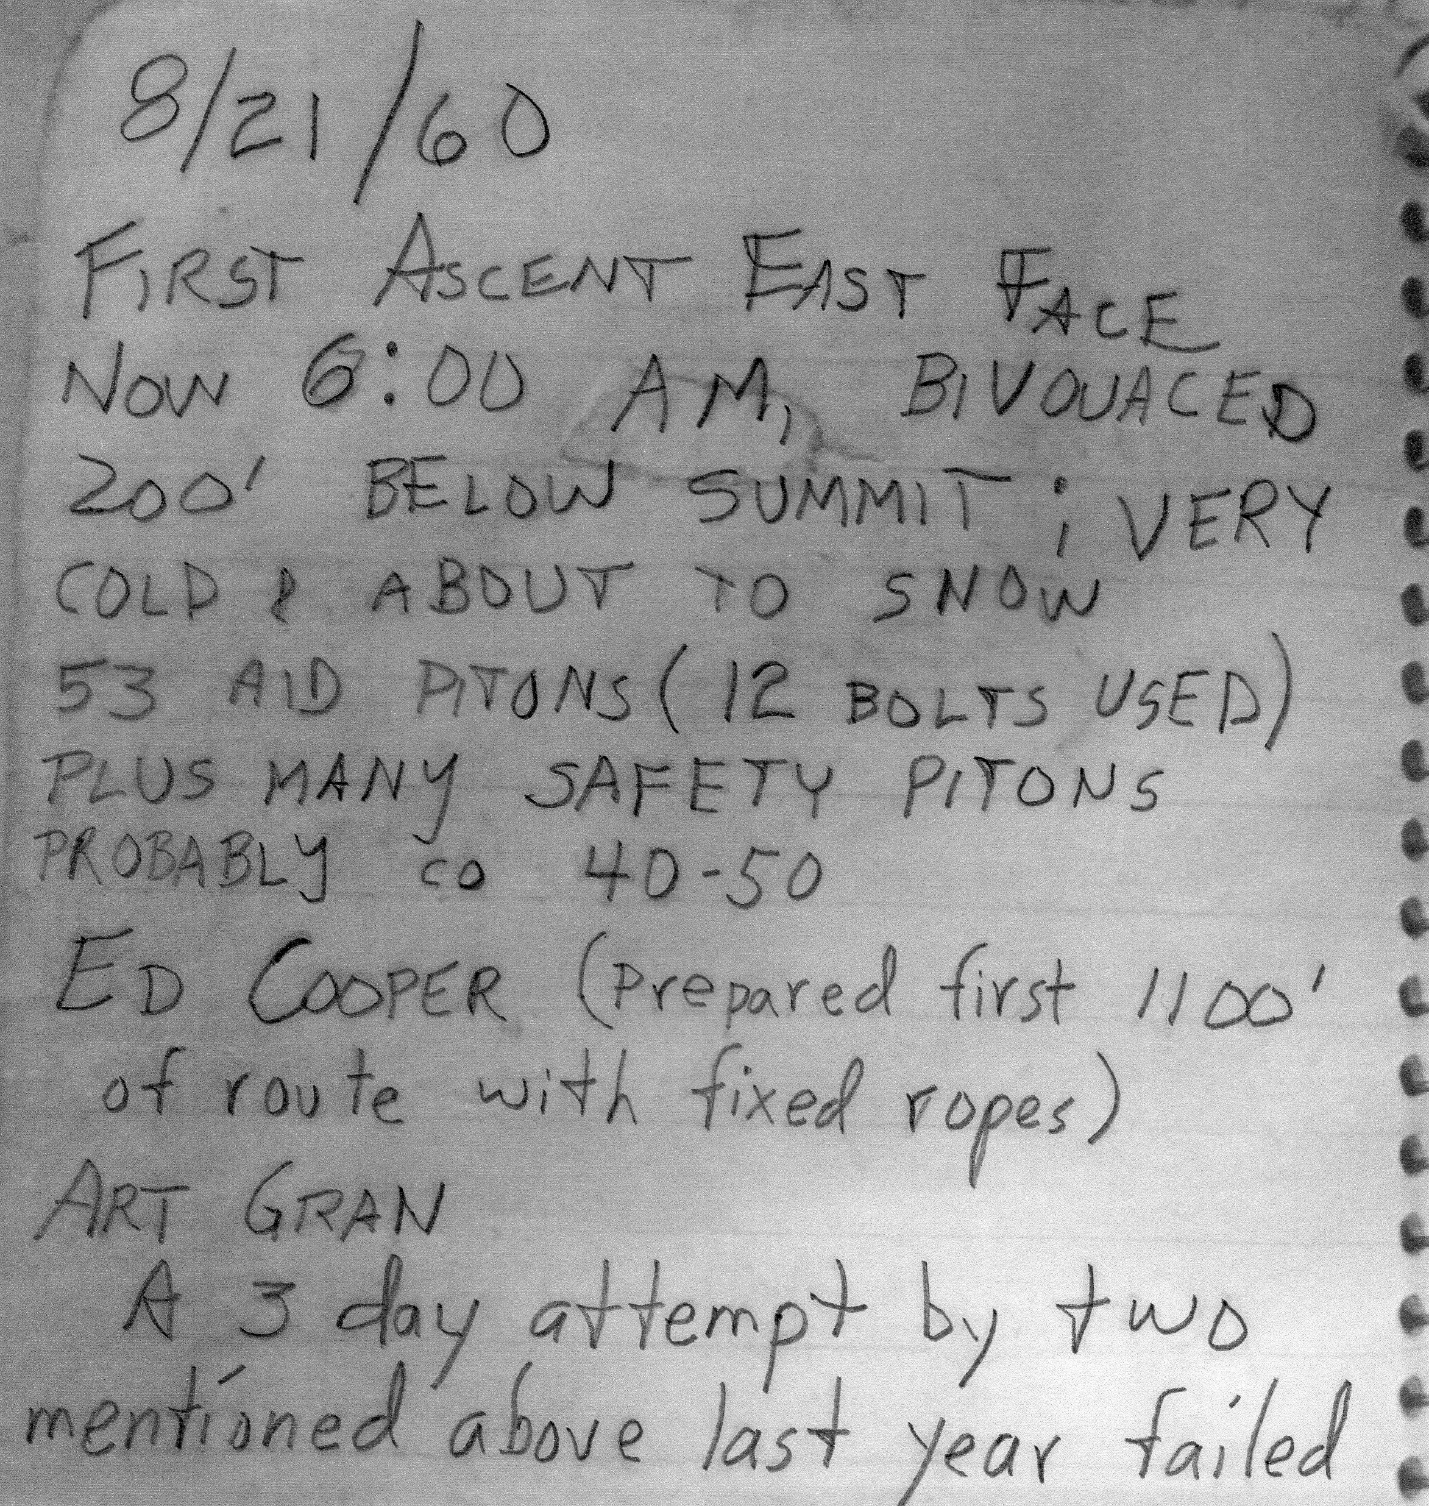 8/21/60
FIRST ASCENT EAST FACE
NOW 6:00 AM, BIVOUACED
200' BELOW SUMMIT; VERY
COLD & ABOUT TO SNOW
53 AID PITONS (12 BOLTS USED)
PLUS MANY SAFETY PITONS
PROBABLY co 40-50
ED COOPER (Prepared first 1100'
of route with fixed ropes)
ART GRAN
A 3 day attempt by two
mentioned above last year failed